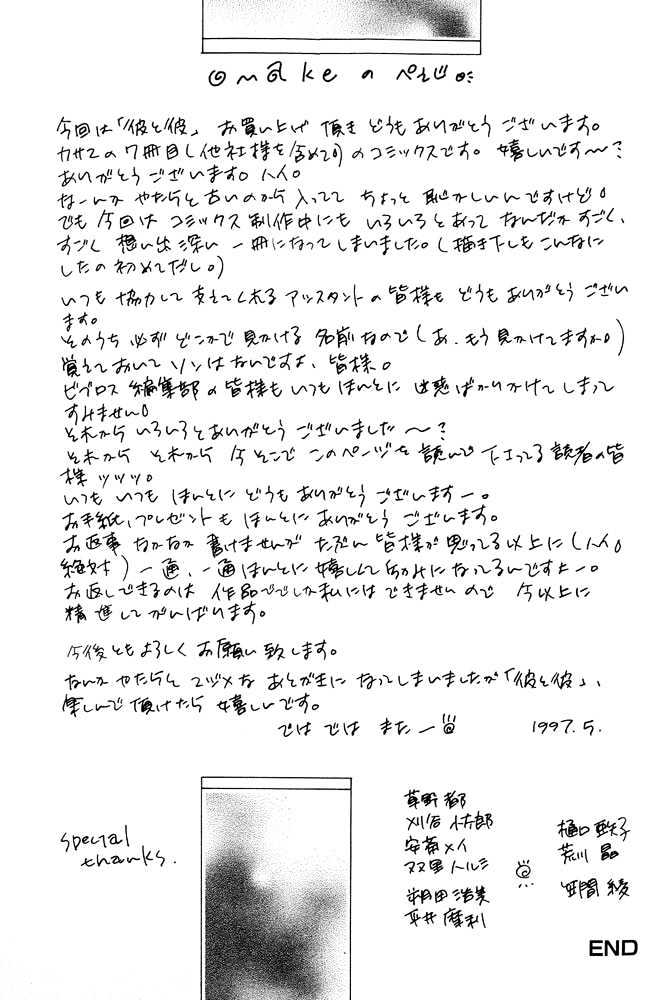 omake のぺえじ
今回は「彼と彼」お買い上げ 頂き どうも ありがとう ございます。
の7冊目(他社様を含めて)のコミックスです。嬉しいです〜?
ありがとう ございます。ハイ。
なーんか やたらと 古いのから 入ってて ちょっと 恥かしいんですけど。
でも 今回は コミックス 制作中にも いろいろとあって なんだか すごく、
すごく 想い出深い 一冊になって しまいました。(描き下しも こんなに
したの 初めてだし。)
いつも 協力して 支えてくれる アシスタントの 皆様も どうも ありがとう ござい
ます。
そのうち 必ず どこかで 見かける 名前なので(あ、もう 見かけてますか。)
覚えておいて ソンは ないですよ、皆様。
ビブロス 編集部の 皆様も いつも ほんとに 迷惑ばかりかけて しまって
すみません。
それから いろいろと ありがとう ございました 〜?
それから それから 今 そこで このページを 読んで 下さってる 読者の 皆
様 ッッッ。
いつも いつも ほんとに どうも ありがとう ございますー。
お手紙、プレゼントも ほんとに ありがとう ございます。
お返事 なかなか 書けませんが たぶん 皆様が 思ってる 以上に(ハイ。
絶対)一通、一通 ほんとに 嬉しくて 励みに なってるんですよー。
お返しできるのは 作品でしか 私には できませんので 今以上に
精進して がんばります。
今後とも よろしく お願い 致します。
なんか やたらと マジメな あとがきに なって しまいましたが 「彼と彼」、
楽しんで 頂けたら 嬉しいです。
では では また ー
1997. 5.
special
thanks.
草野 都
刈谷 小太郎
安斎 メイ
双里 ハルミ
朔田 浩美
平井 摩利
樋口 亜矢子
荒川 晶
笠間 綾
END